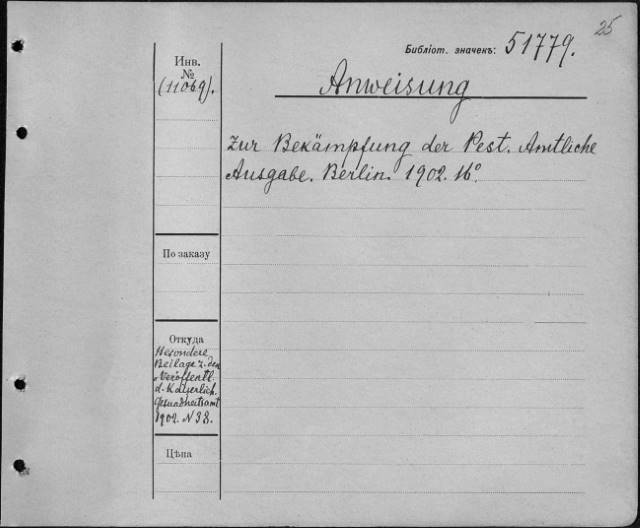 25
Библіот. значекъ: 51779.
Инв.
№
(11069).
Anweisung
zur Bekämpfung der Pest. Amtliche
Ausgabe. Berlin. 1902. 16°.
По заказу
Откуда
Besondere
Beilage z. den
Veröffentl.
d. Kaiserlich.
Gesundheitsamt
1902. N 38.
Цѣна